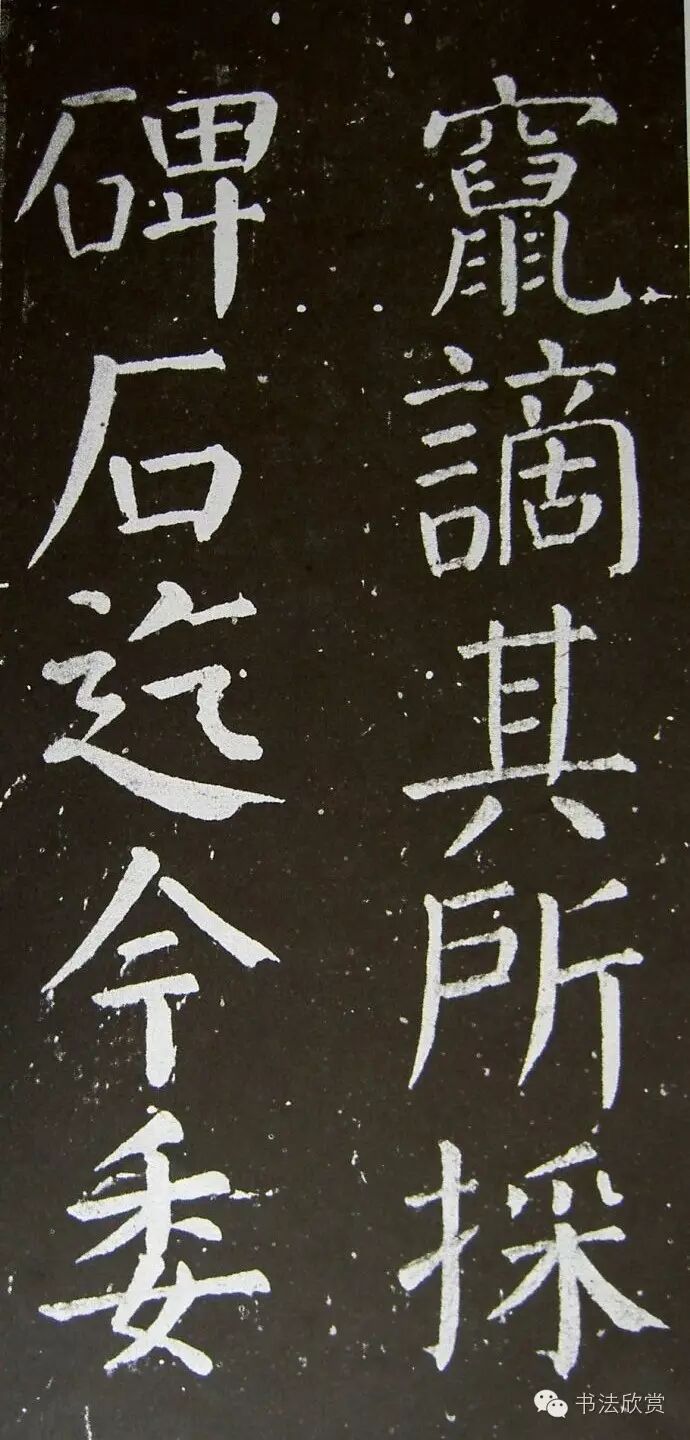 竄謫其所採
碑石迄今委
书法欣赏